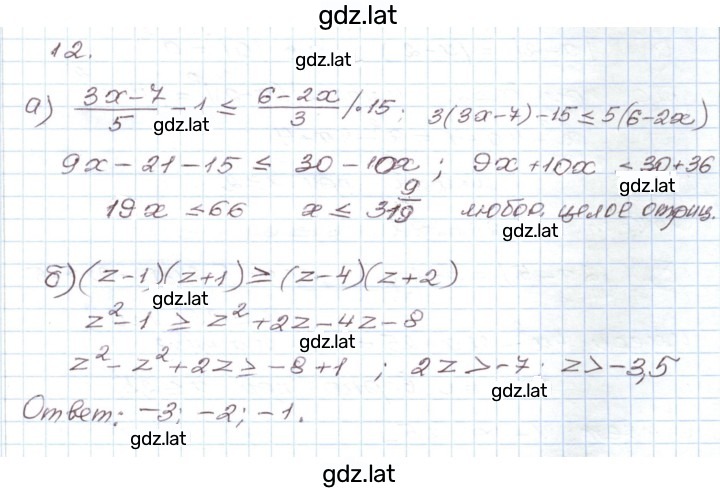 gdz.lat
12.
gdz.lat
а) (3x-7)/5 - 1 ≤ (6-2x)/3 /·15; 3(3x-7)-15≤5(6-2x)
gdz.lat
9x-21-15 ≤ 30-10x; 9x+10x ≤30+36
gdz.lat
19x ≤66 x≤ 3 9/19 любое целое отриц.
gdz.lat
б) (z-1)(z+1)≥(z-4)(z+2)
gdz.lat
z²-1 ≥ z²+2z-4z-8
gdz.lat
z²-z²+2z≥-8+1; 2z>-7; z>-3,5
gdz.lat
Ответ: -3; -2; -1.
gdz.lat
gdz.lat